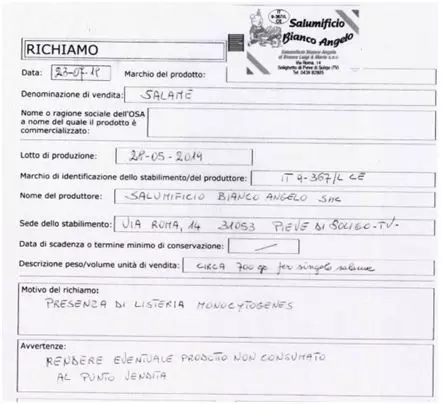 IT
9-367/L
CE
Salumificio
Bianco Angelo
Salumificio Bianco Angelo
di Bianco Luigi & Mario s.n.c.
Via Roma, 14
Solighetto di Pieve di Soligo (TV)
Tel. 0438 82805
RICHIAMO
Data: 23-07-19 Marchio del prodotto:
Denominazione di vendita: SALAME
Nome o ragione sociale dell'OSA
a nome del quale il prodotto è
commercializzato:
Lotto di produzione: 28-05-2019
Marchio di identificazione dello stabilimento/del produttore: IT 9-367/L CE
Nome del produttore: SALUMIFICIO BIANCO ANGELO snc
Sede dello stabilimento: VIA ROMA, 14 31053 PIEVE DI SOLIGO-TV-
Data di scadenza o termine minimo di conservazione:
Descrizione peso/volume unità di vendita: CIRCA 700 gr per singolo salame
Motivo del richiamo:
PRESENZA DI LISTERIA MONOCYTOGENES
Avvertenze:
RENDERE EVENTUALE PRODOTTO NON CONSUMATO
AL PUNTO VENDITA